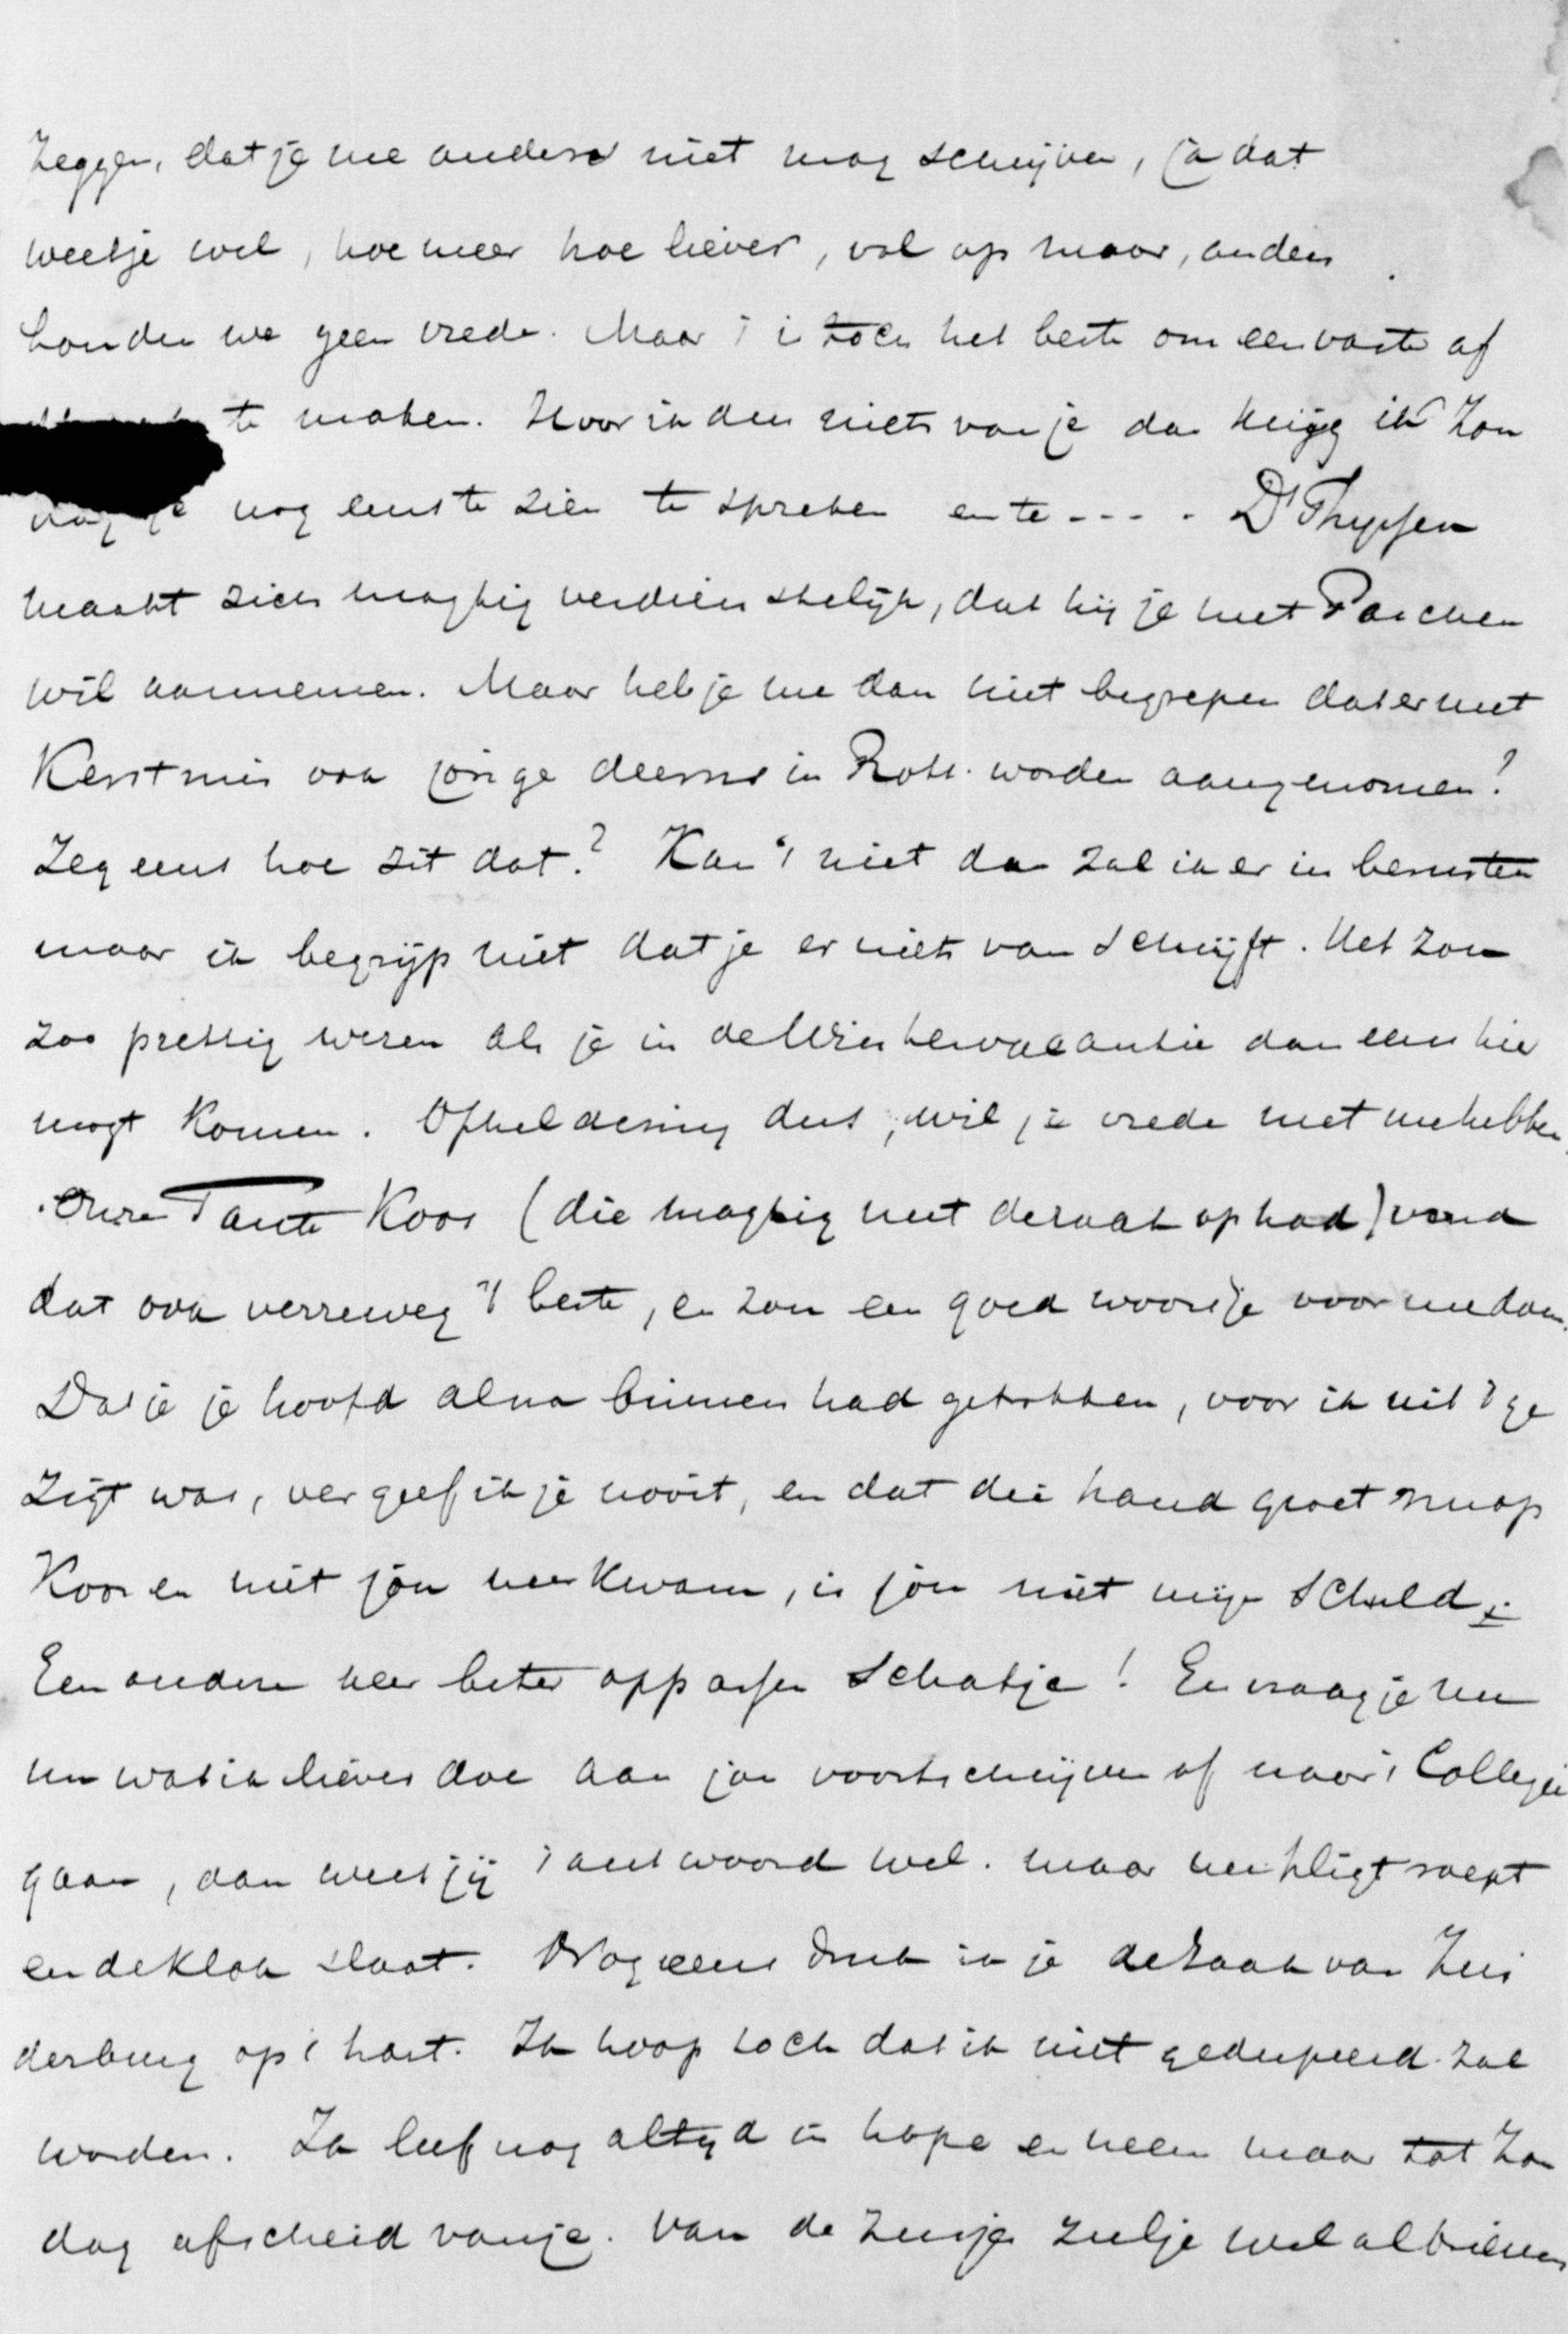 zeggen, dat je me anders niet mag schrijven, ja dat
weetje wel, hoe meer hoe liever, vol op maar, anders
houden we geen vrede. Maar 't is toch het beste om een vaste af
te maken. Hoor ik dus niets van je dan krijg ik Zon
dag je nog eens te zien te spreken en te - - - . Ds Thyssen
maakt zich magtig verdienstelijk, dat hij je met Paschen
wil aannemen. Maar heb je me dan niet begrepen dat er met
Kerstmis ook jonge deerns in Rott. worden aangenomen?
Zeg eens hoe zit dat? Kan 't niet dan zal ik er in berusten
maar ik begrijp niet dat je er niets van schrijft. Het zou
zoo prettig wezen als je in de Wintervacantie dan eens hier
mogt komen. Opheldering dus, wil je vrede met me hebben.
Onze Tante Koos (die magtig met de zaak op had) vond
dat ook verreweg 't beste, en zou een goed woordje voor me doen.
Dat je je hoofd alna binnen had getrokken, voor ik uit 't ge
zigt was, vergeef ik je nooit, en dat die hand groet nu op
Koos en niet jou neerkwam, is jou niet mijn schuld.
Een andere keer beter oppassen Schatje! En vraag je me
nu wat ik liever doe aan jou voortschrijven of naar 't Collegie
gaan, dan weet jij 't antwoord wel. maar me pligt roept
en de klok slaat. Nog eens druk ik je de zaak van Zui
derburg op 't hart. Ik hoop toch dat ik niet gedupeerd zal
worden. Ik leef nog altyd in hope en neem maar tot Zon
dag afscheid van je. Van de zusjes zulje wel al brieven